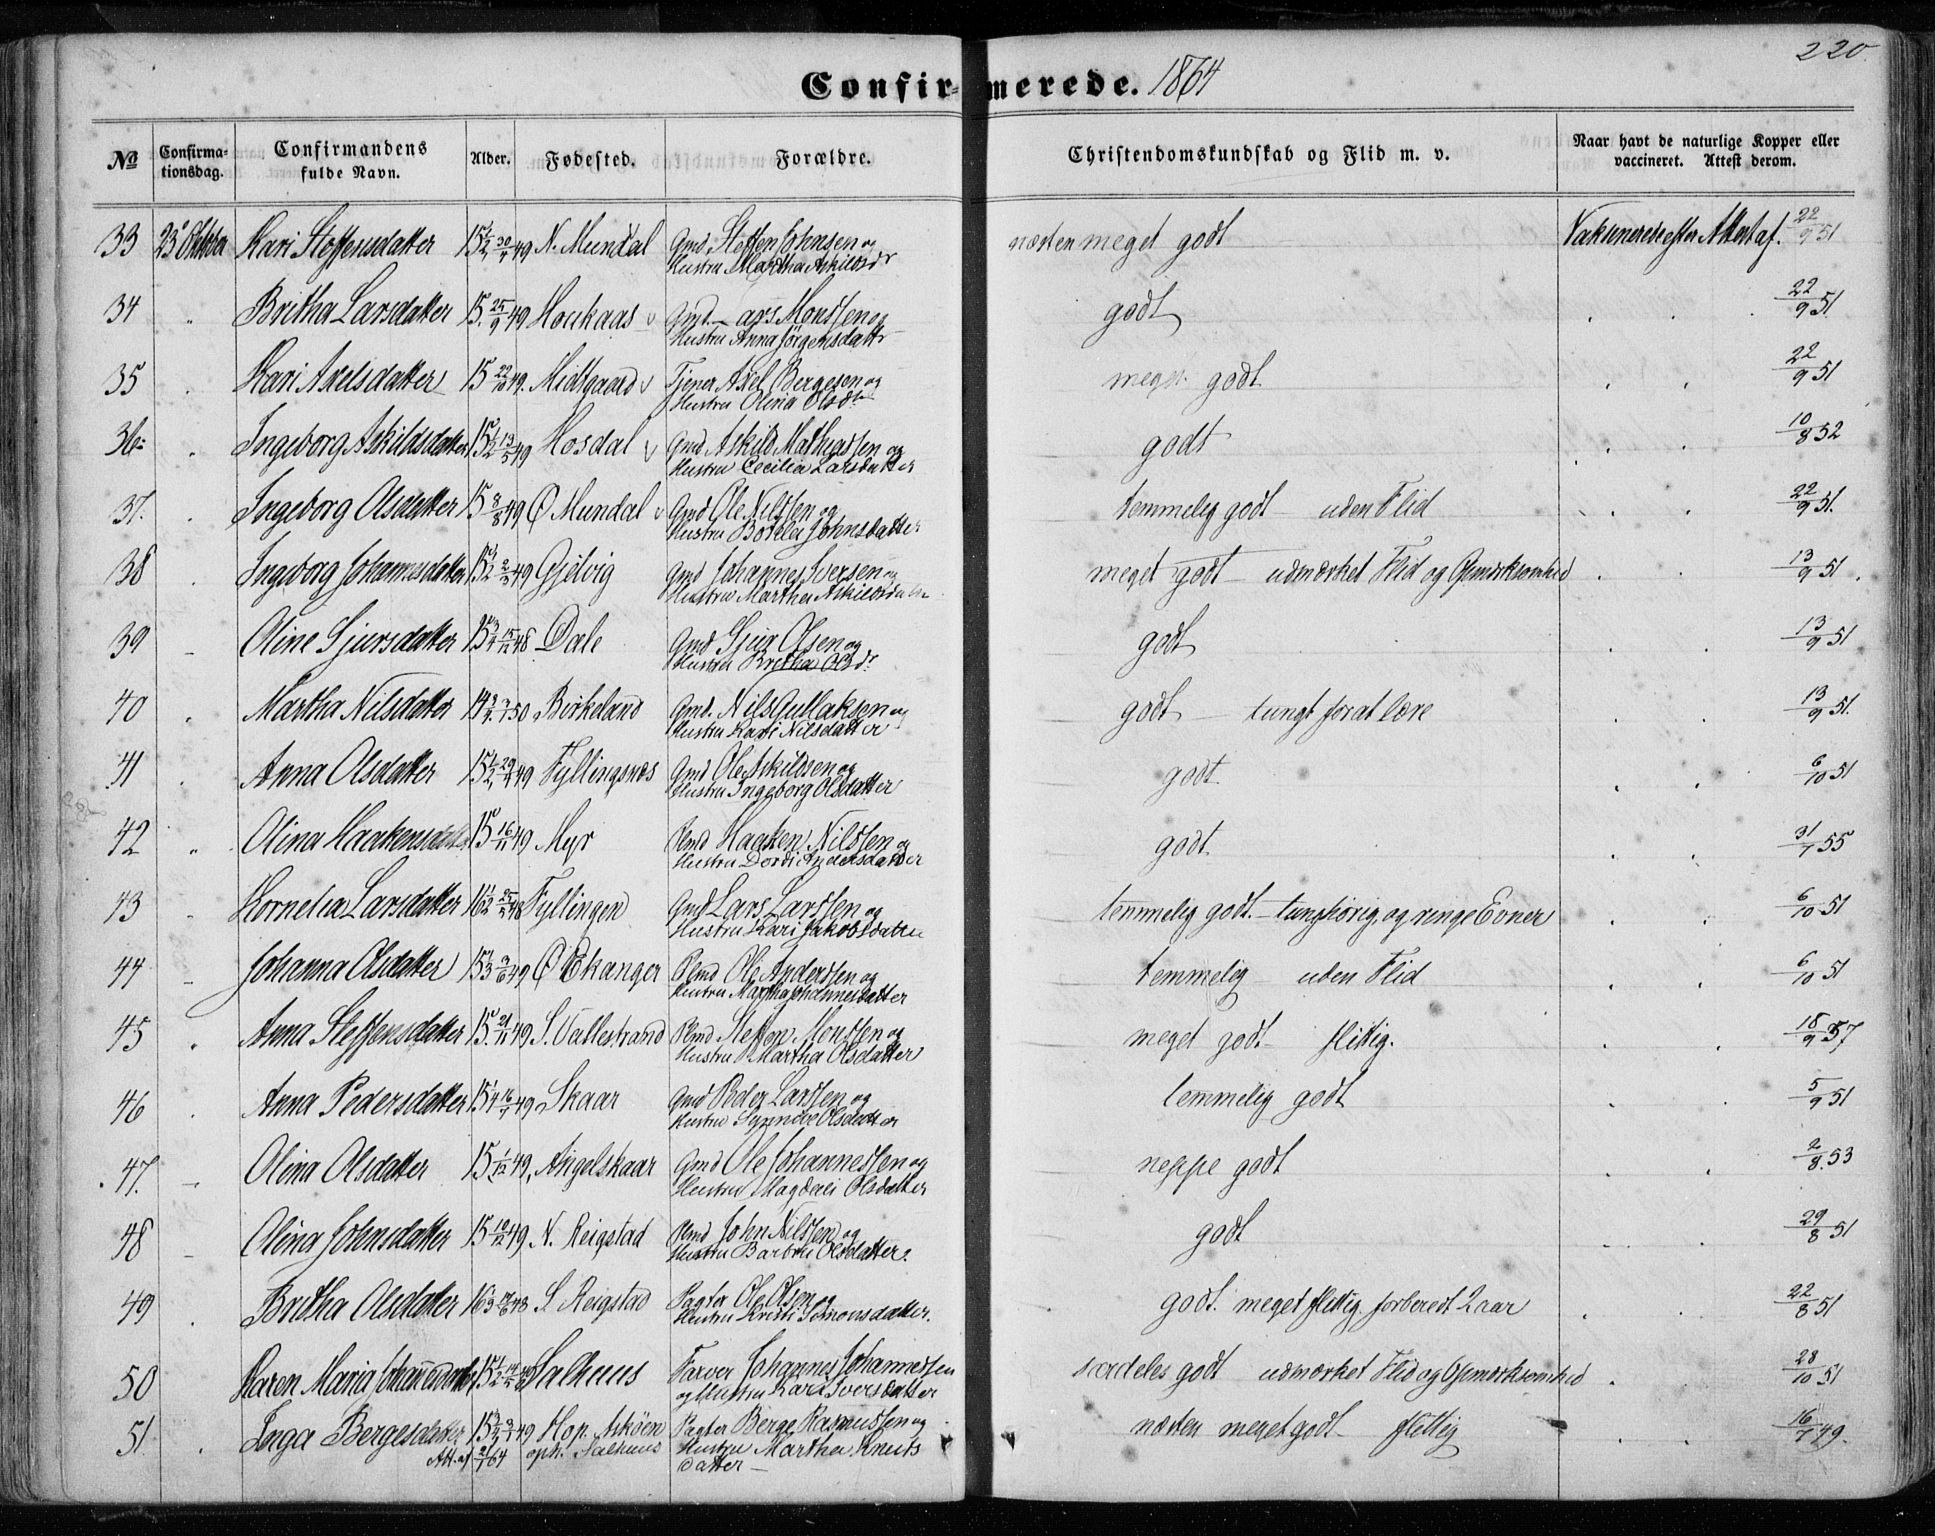 220.
Confirmerede. 1864
No
Confirma-
tionsdag.
Confirmandens
fulde Navn.
Alder.
Fødested.
Forældre.
Christendomskundskab og Flid m. v.
Naar havt de naturlige Kopper eller
vaccineret. Attest derom.
33 23 Oktober Kari Steffensdatter 15 1/2 49 N. Mundal Gmd. Steffen Johnsen og næsten meget godt Vakcineret efter Attest af 22/9 51
Hustru Martha Askildsdr
34 Britha Larsdatter 15. 25/9 49 Houkaas Gmd. Lars Monsen og godt 22/9 51
Hustru Anna Jörgensdattr
35 Kari Axelsdatter 15 22/10 49. Midtgaard Tjener Axel Bergesen og meget godt 22/9 51
Hustru Olina Olsdr
36 Ingeborg Askildsdatter 15 1/2 13/5 49 Hosdal Gmd Askild Mathiassen og godt 10/8 52
Hustru Cecilia Larsdatter
37. Ingeborg Olsdatter 15 8/8 49 Ø Mundal Gmd Ole Nilssen og temmelig godt uden Flid 22/9 51.
Hustru Johnsdatter
38 Ingeborg Johannesdatter 15 1/2 49 Gjelvig Gmd Johannes Iversen og meget godt udmærket Flid og Opmærksomhed 13/9 51.
Hustru Martha Askildsdatter
39 Oline Sjursdatter 15 3/4 15/12 48 Dale Gmd Sjur Olsen og godt 13/9 51
Hustru Britha Olsdr
40 Martha Nilsdatter 14 3/4 50 Birkeland Gmd. Nils Gullaksen og godt tungt for at lære 13/9 51.
Hustru Kari Nilsdatter
41 Anna Olsdatter 15 1/2 29/4 49 Fyllingsnæs Gmd Ole Askildsen og godt 6/10 51
Hustru Ingeborg Olsdatter
42 Olina Haakensdatter 15 16/11 49 Myr Plmd Haaken Nilssen og godt 31/7 55
Hustru Dordi Andersdatter
43 Kornelia Larsdatter 16 1/2 48 Fyllingen Gmd Lars Larssen og temmelig godt. tunghörig, og ringe Evner 6/10 51
Hustru Kari Jakobsdatter
44 Johanna Olsdatter 15 1/3 49 Ø Ekanger Plmd Ole Anderssen og temmelig uden Flid 6/10 51
Hustru Martha Johannesdatter
45 Anna Steffensdatter 15. 21/11 49 S. Vallestrand Plmd Steffen Monssen og meget godt flittig. 18/9 57
Hustru Martha Olsdatter
46 Anna Pedersdatter 15 1/4 16/7 49 Skaar Gmd Peder Larssen og temmelig godt 5/9 51
Hustru Synnöve Olsdatter
47. Olina Olsdatter 15 1/12 49, Angelskaar Gmd Ole Johannessen og neppe godt 2/8. 53
Hustru Magdeli Olsdatter
48 Olina Johnsdatter 15 10/12 49 N. Reigstad Plmd John Nilssen og godt 29/8 51
Hustru Barbro Olsdatter.
49 Britha Olsdatter 16 1/3 48 S. Reigstad Pagter Ole Olsen og godt. meget flittig forberedt 2 aar 22/8 51
Hustru Kristi Simonsdatter.
50 Karen Maria 15 1/2 14/5 49 Salhuus Farver Johannes Johannessen særdeles godt udmærket Flid og Opmærksomhed 28/10 51
og Hustru Kari Iversdatter
51 Inga Bergesdatter 15 49 Hop. Askøen Pagter Berge Rasmussen og næsten meget godt flittig 16/7 49.
Att. af 2/7 64 oph. Salhuus Hustru Martha Knuts
datter